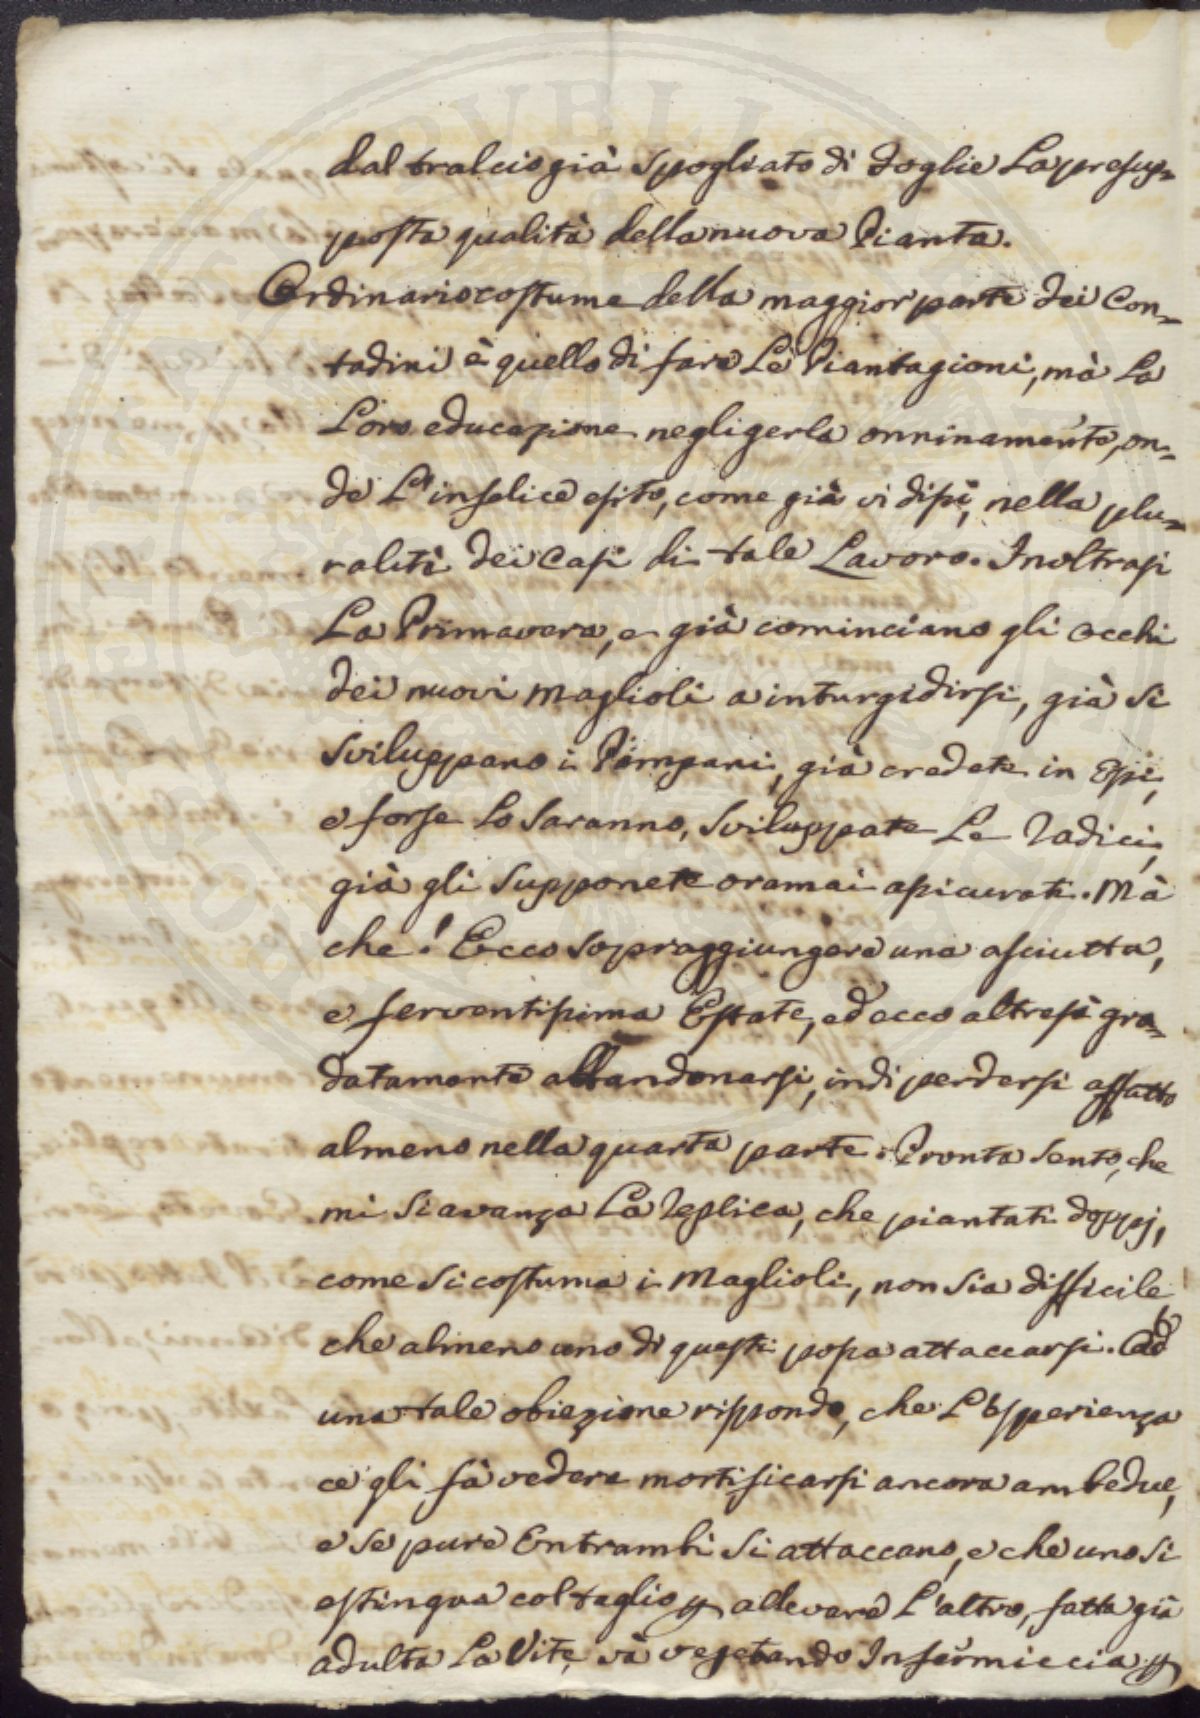 dal tralcio già spogliato di Foglie La presup=
posta qualità della nuova Pianta.
Ordinario costume della maggior parte dei Con=
tadini è quello di fare Le Piantagioni, mà La
Loro educazione negligerla onninamente, on=
de L'infelice esito, come già vi dissi, nella plu=
ralità dei Casi di tale Lavoro. Inoltrasi
La Primavera, e già cominciano gli occhi
dei nuovi Maglioli a inturgidirsi, già si
sviluppano i Pampani, già credete in Essi,
e forse Lo saranno, sviluppate Le Radici,
già gli supponete oramai assicurati. Mà
che! Ecco sopraggiungere una asciutta,
e ferventissima Estate, ed ecco altresì gra=
datamente abbandonarsi, indi perdersi affatto
almeno nella quarta parte. Pronta sento, che
mi si avanza La Replica, che piantati doppj,
come si costuma i Maglioli, non sia difficile
che almeno uno di questi possa attaccarsi. Ad
una tale obiezione rispondo, che L'esperienza
ce gli fà vedere mortificarsi ancora ambedue,
e se pure Entrambi si attaccano, e che uno si
estingua col taglio p allevare L'altro, fatta già
adulta La Vite, và vegetando Infermiccia p